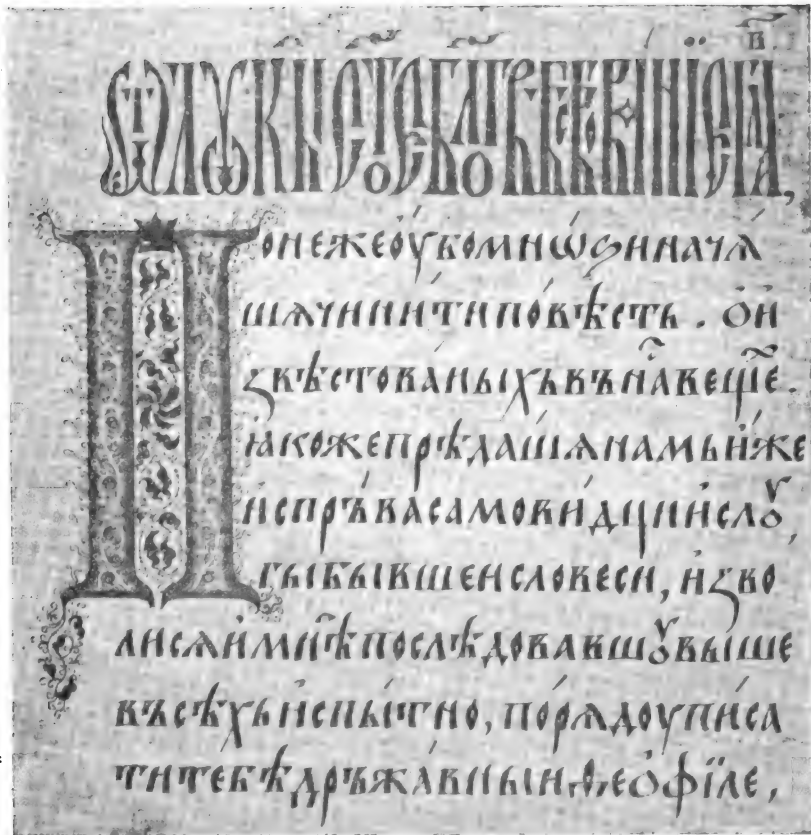 Ѿлꙋкы ст҃ое бл҃говѣствованїе
Понежеоубомнѡѕиначѧ
шѧчинитиповѣсть. ои
ꙁвѣстованыхьвънⷭ҇авеще҃.
ꙗкожепрѣдашѧнамьиже
испръвасамовидциислꙋ,
гыбывшеисловеси, иꙁво
лисѧимнѣпослѣдовавшꙋвыше
въсѣхьиспытно, порѧдоуписа
титебѣдръжавныиѳеофїле,